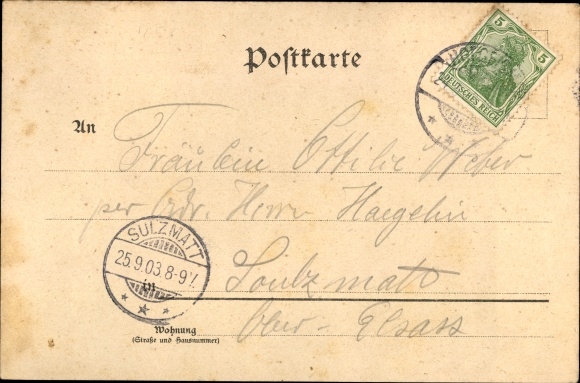 Postkarte
5
DEUTSCHES REICH
An
Fräulein Ottilie Weber
per Adr. Herrn Haegelin
SULZMATT
25.9.03.8-9V.
in
Soulzmatt
Ober-Elsass
Wohnung
(Straße und Hausnummer)